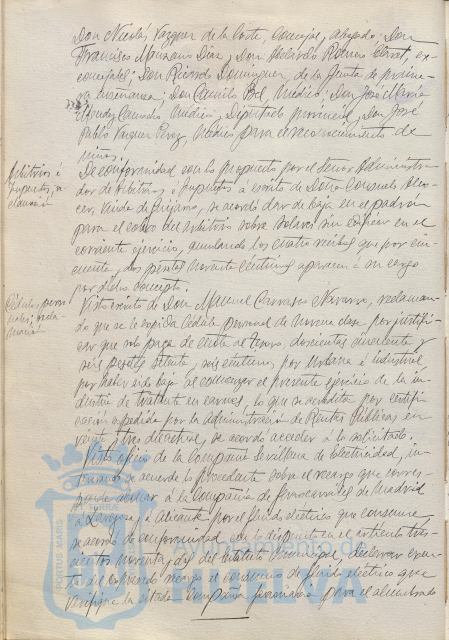 Don Nicolás Vazquez de la Corte, Concejal, abogado; Don
Francisco Manzano Diaz, Don Abelardo Romero Claret, ex-
concejales; Don Ricardo Dominguez, de la Junta de prime-
ra enseñanza; Don Camilo Bel, Médico; Don José Maria
Mendez Camacho, Médico, Diputado provincial, Don José
Pablo Vazquez Perez, Médico para el reconocimiento de
niños.
Arbitrios é
impuestos, re-
clamación
De conformidad con lo propuesto por el Señor Administra-
dor de Arbitrios é impuestos á escrito de Doña Consuelo
cer, Viuda de Guijarro, se acordó dar de baja en el padrón
para el cobro del arbitrio sobre solares sin edificar en el
corriente ejercicio, anulando los cuatro recibos que por cin-
cuenta y dos pesetas noventa céntimos aparecen á su cargo
por dicho concepto.
Cédulas perso-
nales; recla-
mación
Visto escrito de Don Manuel Carrasco Navarro, reclaman-
do que se le expida Cédula personal de novena clase por justifi-
car que solo paga de cuota al tesoro doscientas cincuenta y
seis pesetas setenta y seis céntimos, por Urbana é industrial
por haber sido baja al comenzar el presente ejercicio de la in-
dustria de tratante en carnes, lo que se acredita por certifi-
cación expedida por la Administración de Rentas Públicas en
veinte y tres del actual, se acordó acceder á lo solicitado.
Visto oficio de la Compañia Sevillana de Electricidad, in-
teresando se acuerde lo procedente sobre el recargo que corres-
ponde abonar á la Compañia de ferrocarriles de Madrid
á Zaragoza y á Alicante por el fluido eléctrico que consume
se acordó de conformidad con lo dispuesto en el artículo tres-
cientos noventa y dos del Estatuto Municipal, declarar exen-
to del referido recargo el consumo de fluido eléctrico que
verifique la citada Compañia ferroviaria para el alumbrado
PORTUS MARIS
HUELVA